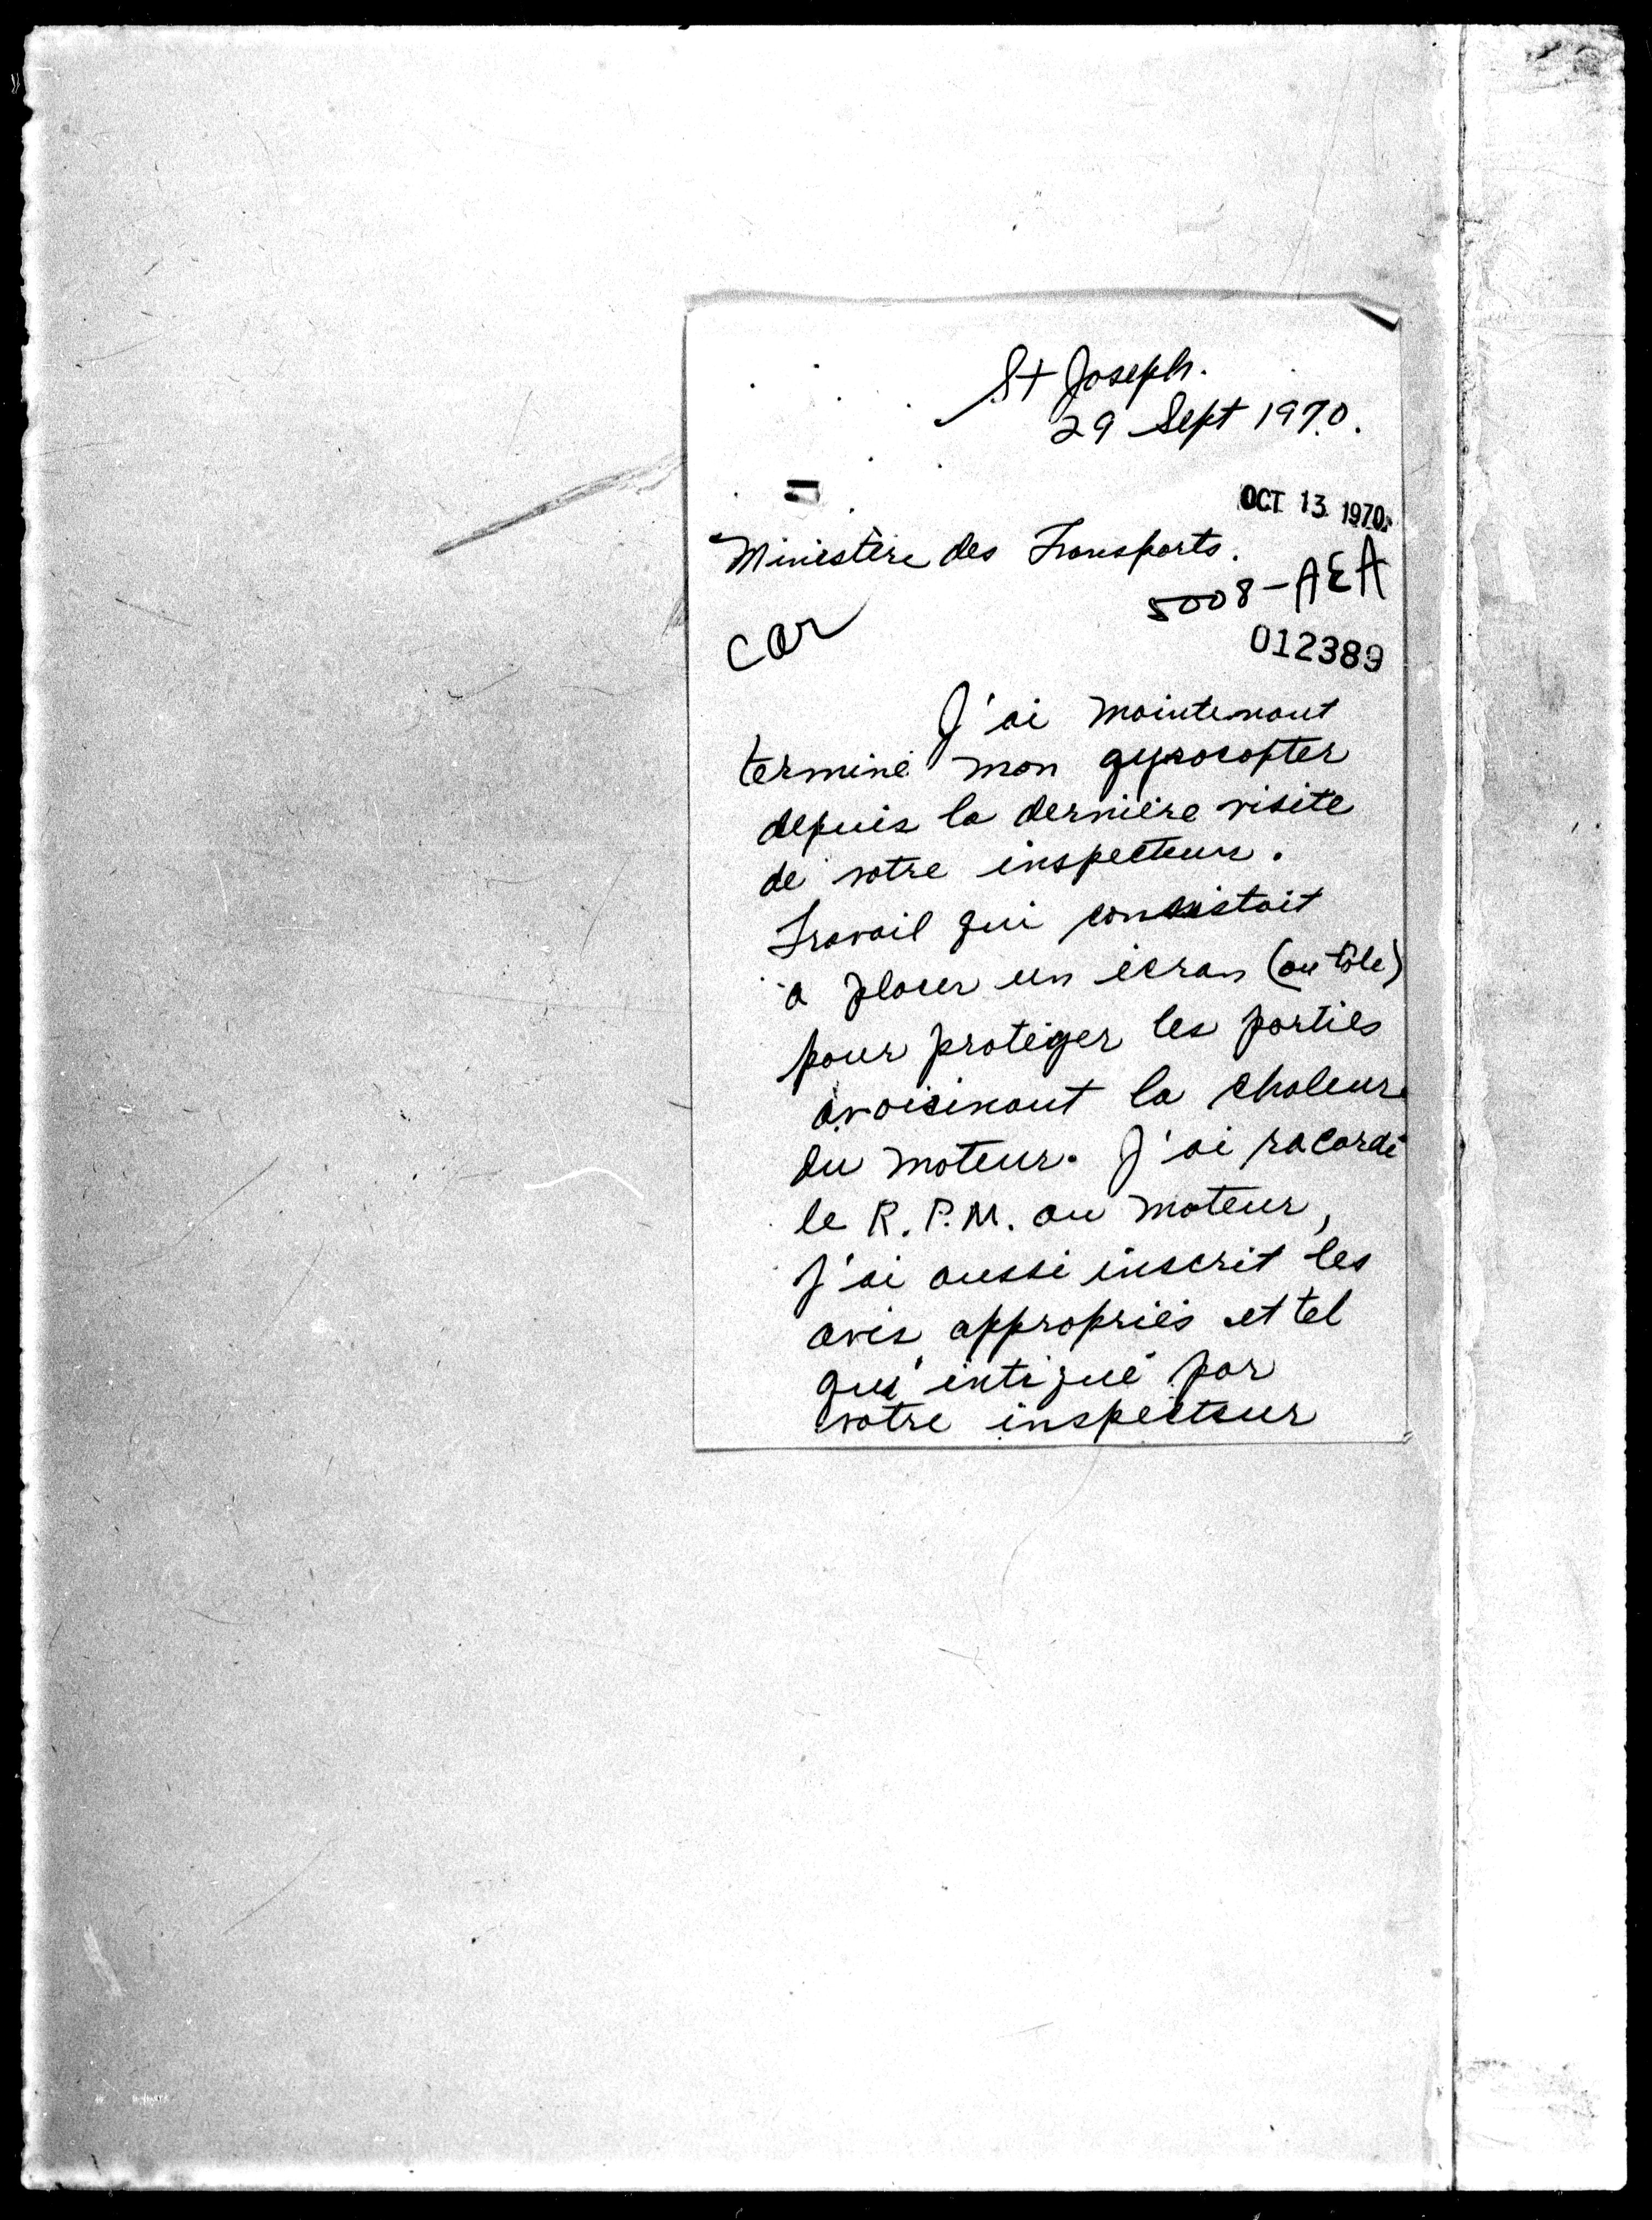 St Joseph.
29 Sept 1970.
OCT 13 1970
Ministère des Transports.
5008-AEA
car
012389
J'ai maintenant
terminé mon gyrocopter
depuis la dernière visite
de votre inspecteur.
Travail qui consistait
a placer un écran (ou tôle)
pour protéger les parties
avoisinant la chaleur
du moteur. J'ai racordé
le R.P.M. au moteur,
j'ai aussi inscrit les
avis appropriés et tel
qu'intiqué par
votre inspecteur